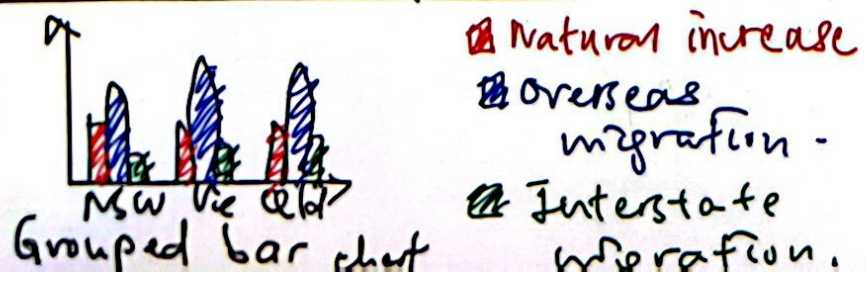 NSW Vic Qld
Grouped bar chart
Natural increase
Overseas
migration.
Interstate
migration.